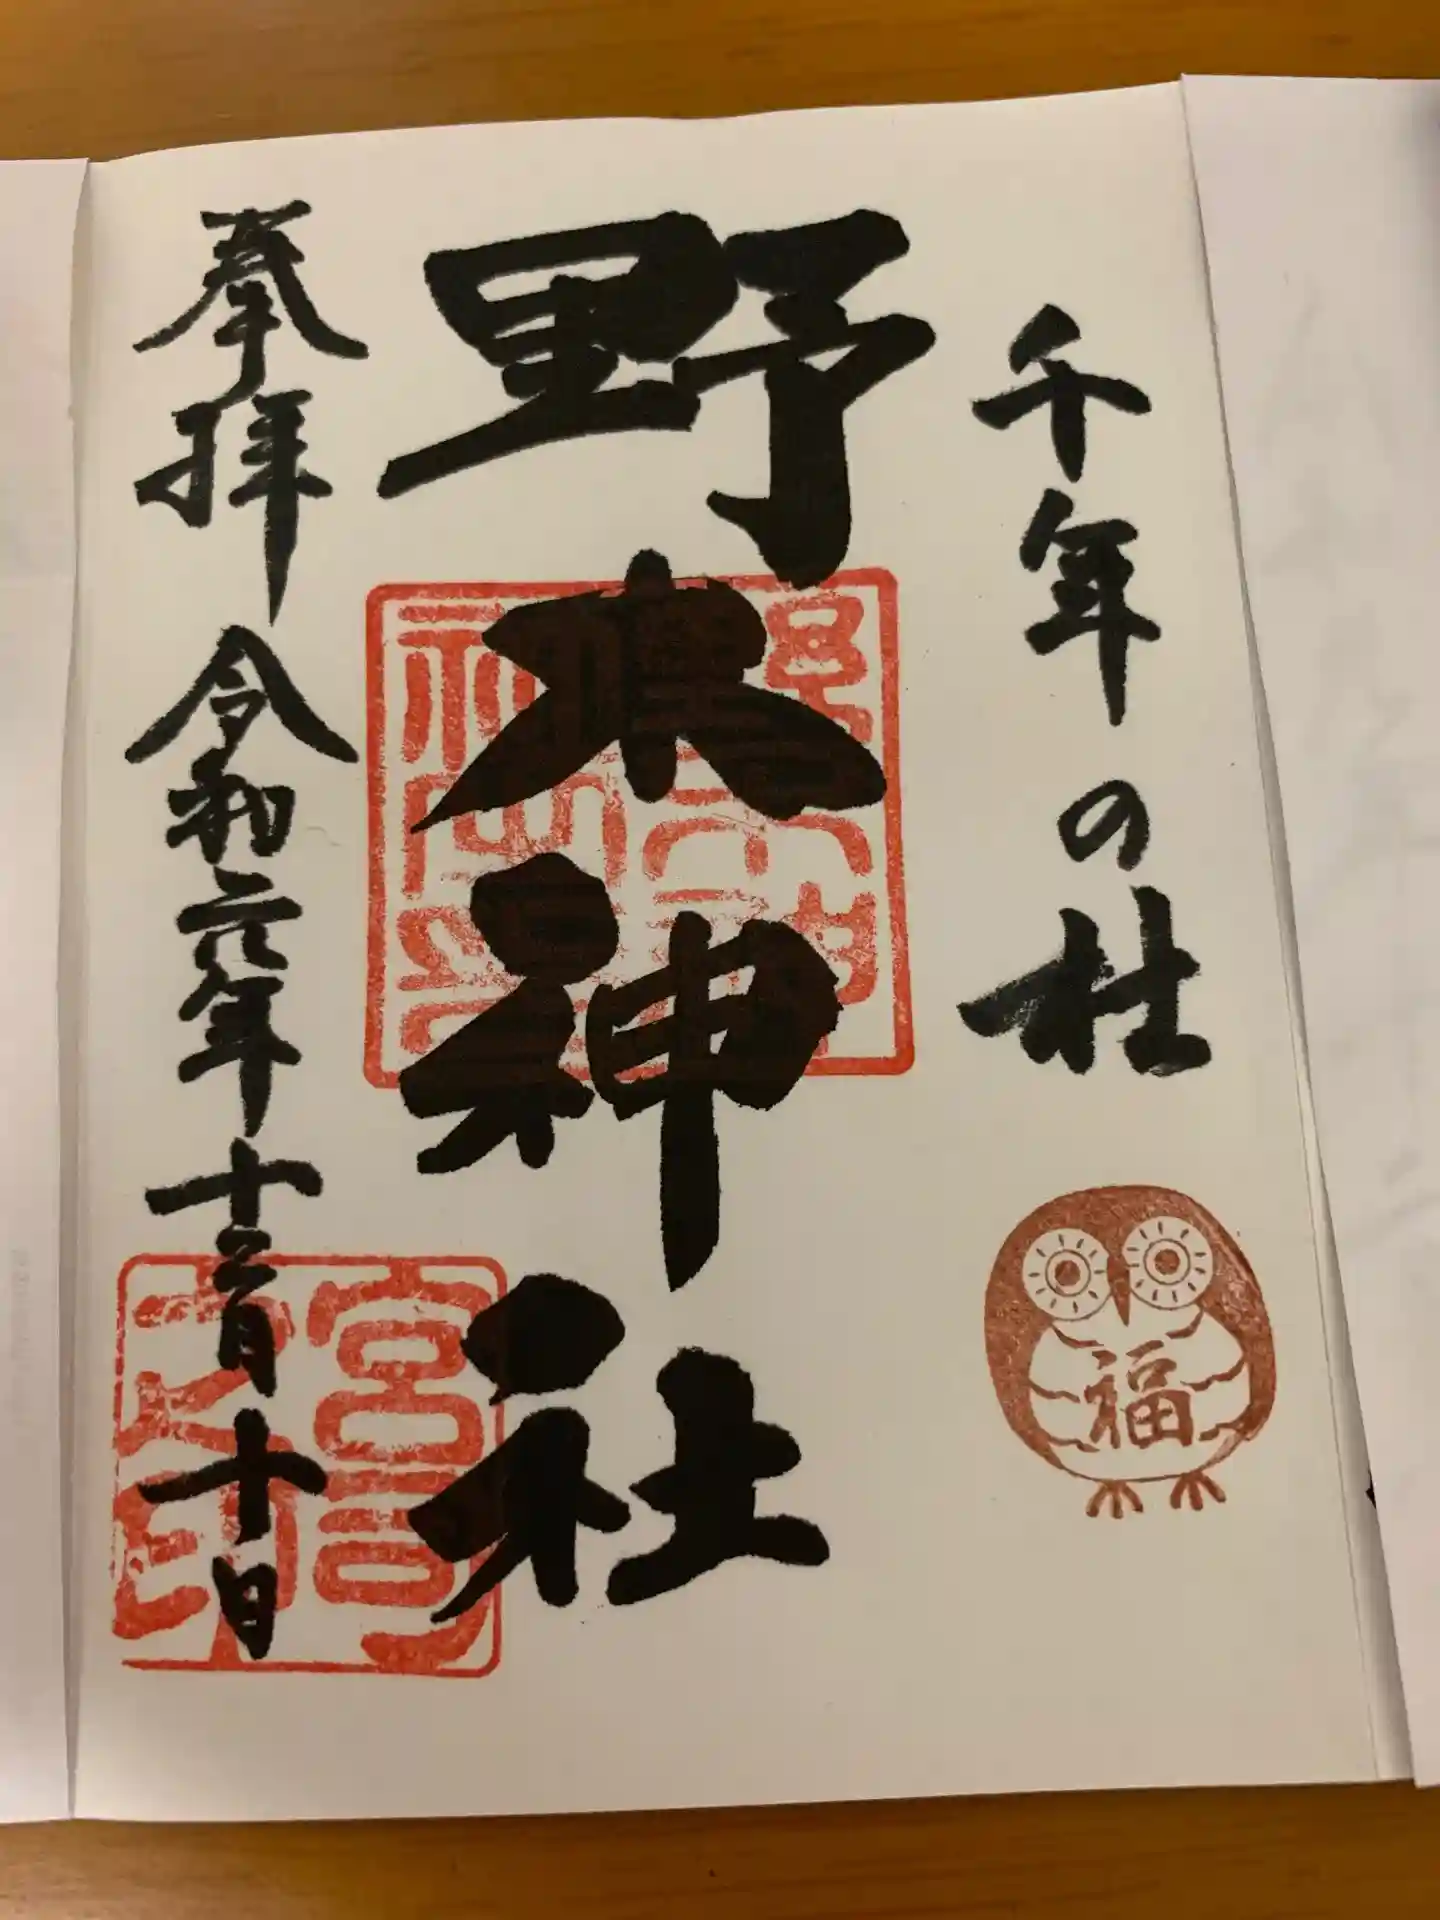 千年の杜
野木神社
奉拝 令和六年十二月十日
福
宮司之印